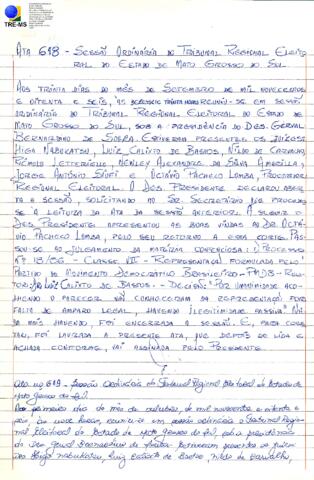 TRE-MS
ATA 618 - SESSÃO ORDINÁRIA DO TRIBUNAL REGIONAL ELEITO
RAL DO ESTADO DE MATO GROSSO DO SUL
AOS TRINTA DIAS DO MÊS DE SETEMBRO DE MIL NOVECENTOS
E OITENTA E SEIS, ÀS DEZESSETE TRINTA HORAS REUNIU-SE EM SESSÃO
ORDINÁRIA DO TRIBUNAL REGIONAL ELEITORAL DO ESTADO DE
MATO GROSSO DO SUL, SOB A PRESIDÊNCIA DO DES. GERVAL
BERNARDINO DE SOUZA. ESTIVERAM PRESENTES OS JUÍZES
HIGA NABUKATSU, LUIZ CALIXTO DE BASTOS, NILDO DE CARVALHO,
RÊMOLO LETTERIELLO, HENLEY ALEXANDRE DA SILVA
JORGE ANTÔNIO SIUFI E OCTÁVIO PACHECO LOMBA, PROCURADOR
REGIONAL ELEITORAL. O DES. PRESIDENTE DECLAROU ABER
TA A SESSÃO, SOLICITANDO AO SR. SECRETÁRIO QUE PROCEDES
SE À LEITURA DA ATA DA SESSÃO ANTERIOR. A SEGUIR O
DES. PRESIDENTE APRESENTOU AS BOAS VINDAS AO DR. OCTÁ
VIO PACHECO LOMBA, PELO SEU RETORNO A ESSA CORTE. PAS
SOU-SE AO JULGAMENTO DA MATÉRIA CONTENCIOSA: 1) PROCESSO
Nº 18/86 - CLASSE VII - REPRESENTAÇÃO FORMULADA PELO
PARTIDO DO MOVIMENTO DEMOCRÁTICO BRASILEIRO - PMDB - RELA
TOR: DR. LUIZ CALIXTO DE BASTOS. - DECISÃO: "POR UNANIMIDADE ACO
LHENDO O PARECER, NÃO CONHECERAM DA REPRESENTAÇÃO POR
FALTA DE AMPARO LEGAL, HAVENDO ILEGITIMIDADE PASSIVA". NA
DA MAIS HAVENDO, FOI ENCERRADA A SESSÃO. E, PARA CONS
TAR, FOI LAVRADA A PRESENTE ATA, QUE DEPOIS DE LIDA E
ACHADA CONFORME, VAI ASSINADA PELO PRESIDENTE.
Ata nº 619 - Sessão Ordinária do Tribunal Regional Eleitoral do Estado de
Mato Grosso do Sul.
Ao primeiro dia do mês de outubro de mil novecentos e oitenta e
seis, às horas, reuniu-se em sessão ordinária o Tribunal Regio
nal Eleitoral do Estado de Mato Grosso do Sul, sob a presidência
do Des. Gerval Bernardino de Souza. Estiveram presentes os juízes
Higa Nabukatsu, Luiz Calixto de Bastos, Nildo de Carvalho,